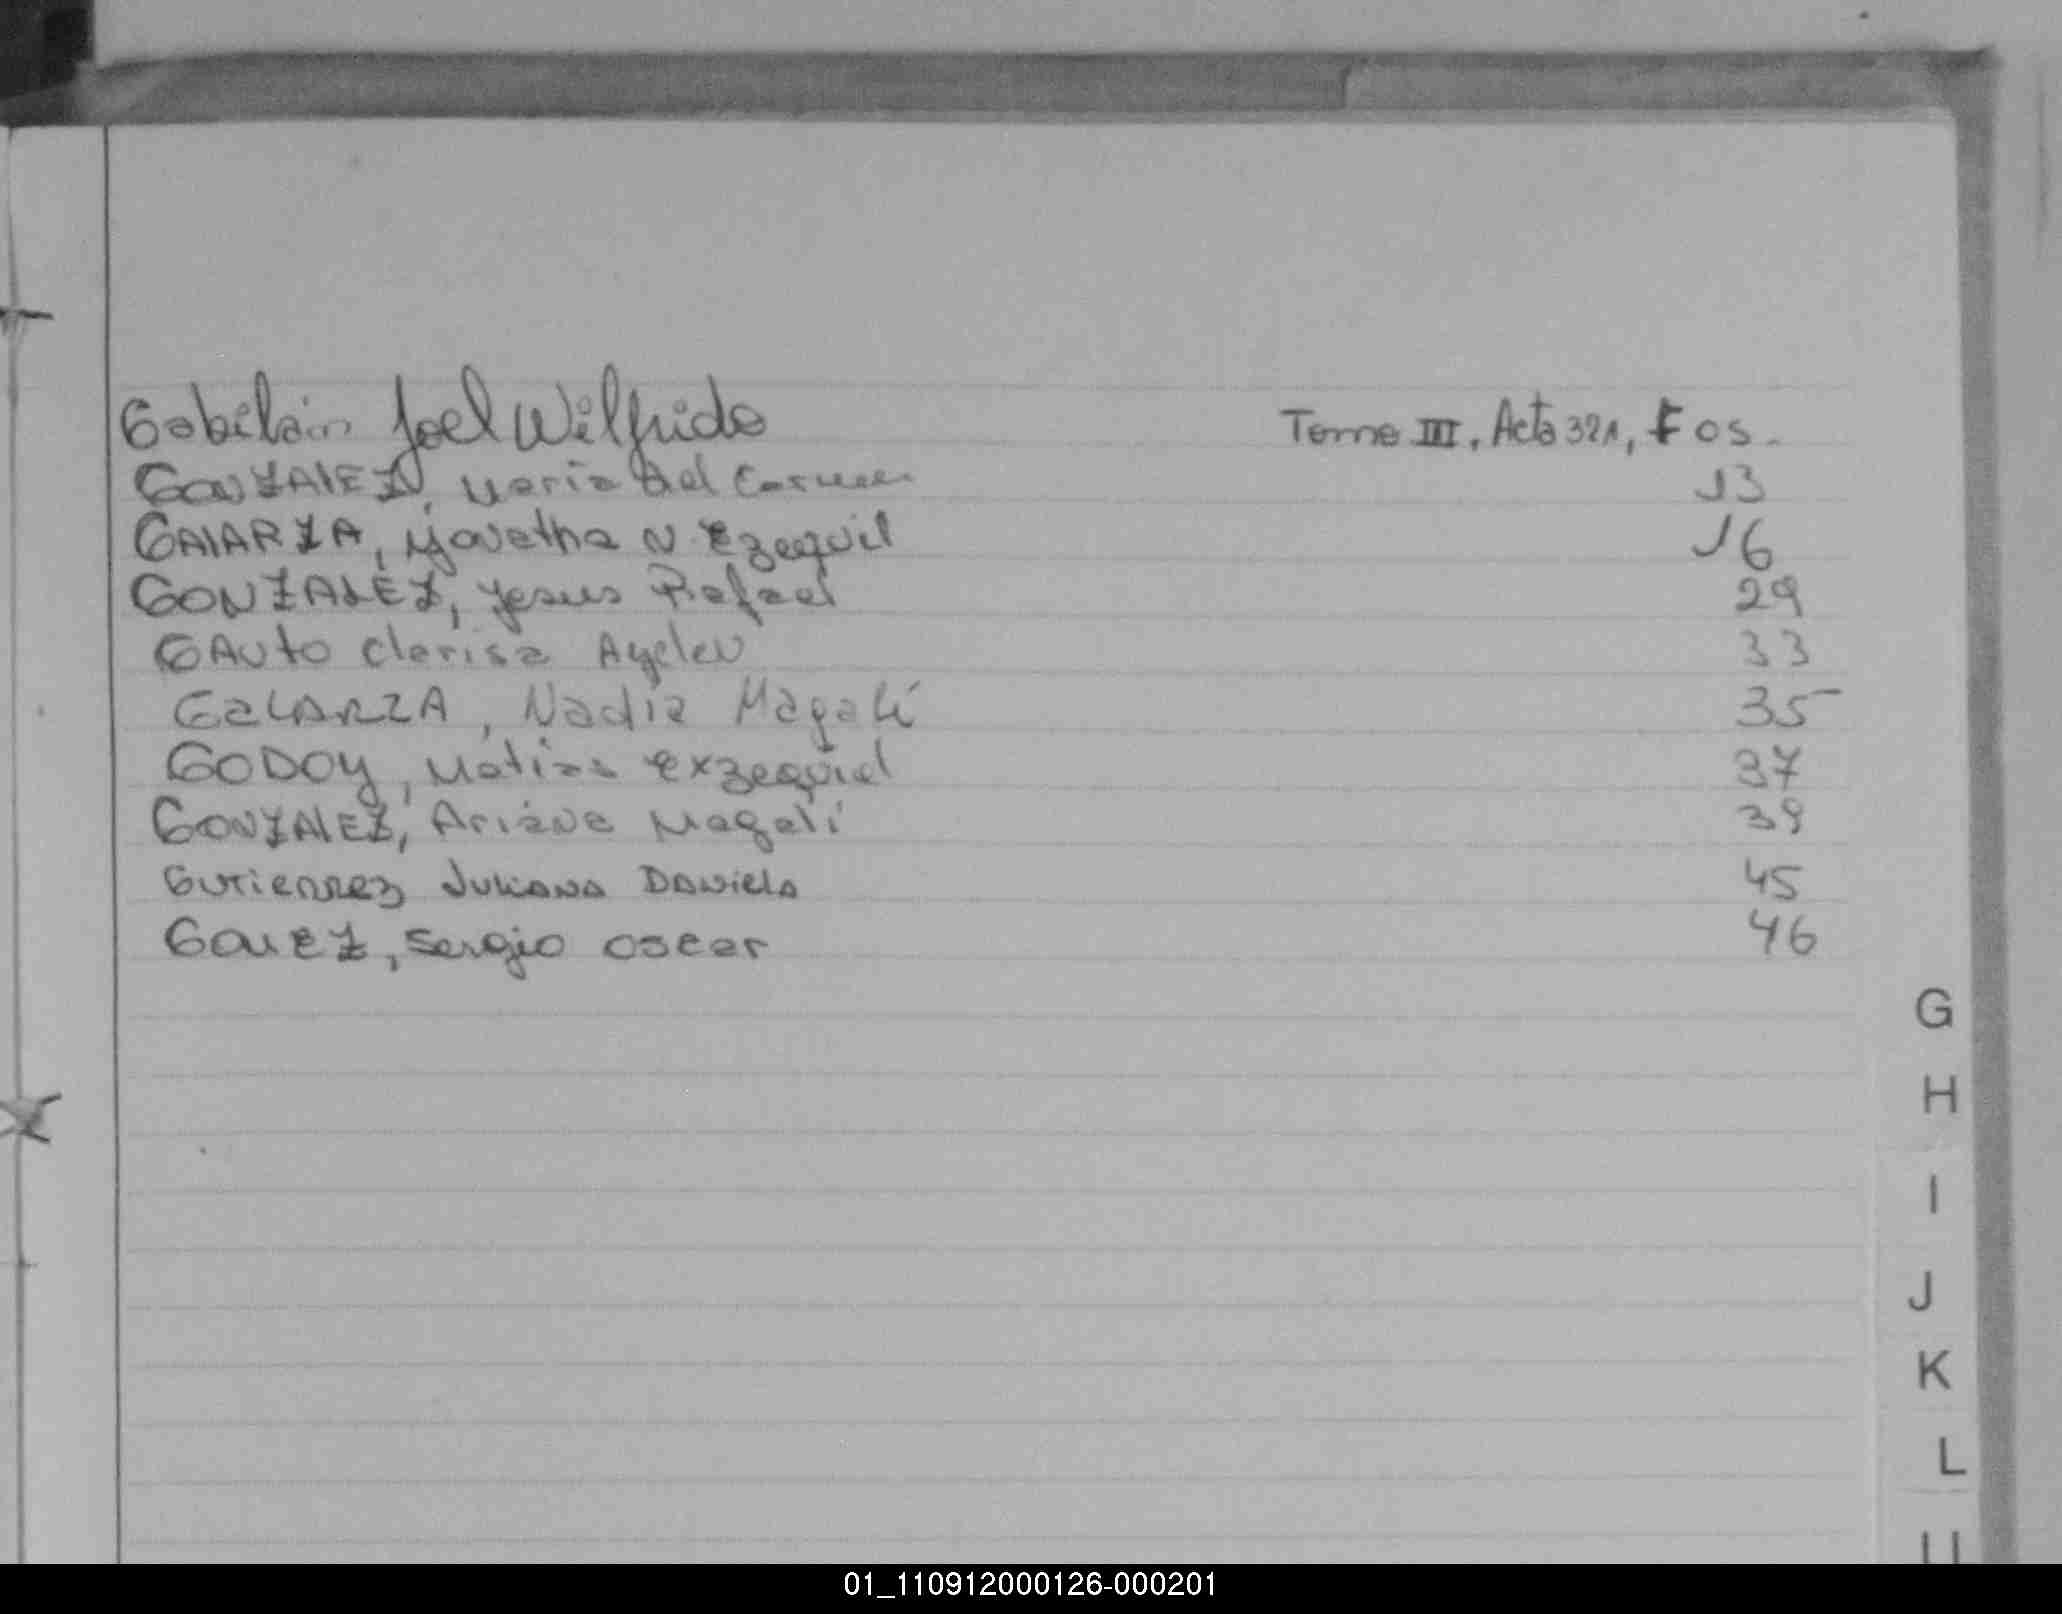 Gabilán Joel Wilfrido Tomo III, Acta 321, F 05.
GONZALEZ, Maria del Carmen 13
GALARZA, Yonetha N Ezequil 16
GONZALEZ, Jesus Rafael 29
GAUto Clarisa Ayelen 33
GaLARZA, Nadia Magali 35
GODOY, Matias exzequiel 37
GONZALEZ, Ariana Magali 39
Gutierrez Juliana Daniela 45
GOMEZ, Sergio oscar 46
G
H
I
J
K
L
LL
01_110912000126-000201